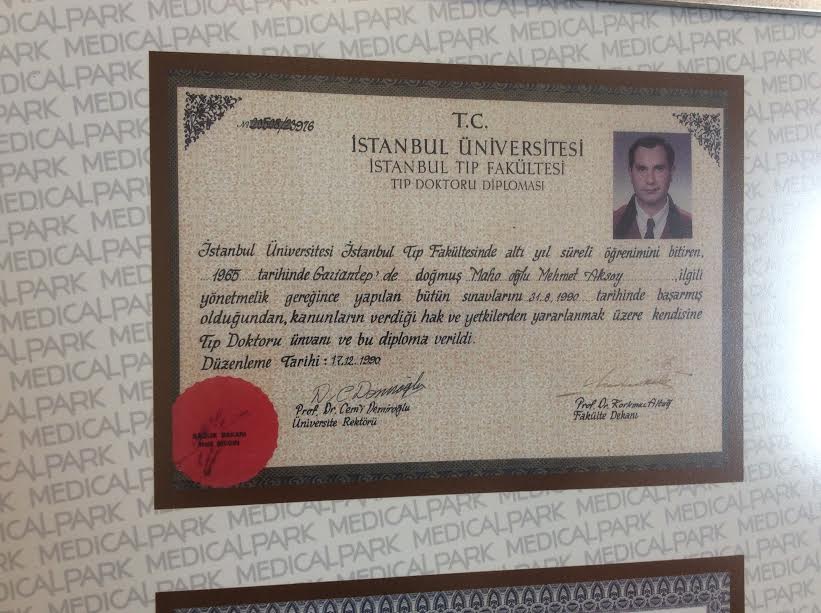 MEDICALPARK
T.C.
İSTANBUL ÜNİVERSİTESİ
İSTANBUL TIP FAKÜLTESİ
TIP DOKTORU DİPLOMASI
İstanbul Üniversitesi İstanbul Tıp Fakültesinde altı yıl süreli öğrenimini bitiren,
1965 tarihinde Gaziantep'de doğmuş Maho oğlu Mehmet Aksoy ilgili
yönetmelik gereğince yapılan bütün sınavlarını 31.8.1990 tarihinde başarmış
olduğundan, kanunların verdiği hak ve yetkilerden yararlanmak üzere kendisine
Tıp Doktoru ünvanı ve bu diploma verildi.
Düzenleme Tarihi : 17.12.1990
Prof. Dr. Cem'i Demiroğlu
Üniversite Rektörü
Prof. Dr. Korkmaz Altuğ
Fakülte Dekanı
SAĞLIK BAKANI